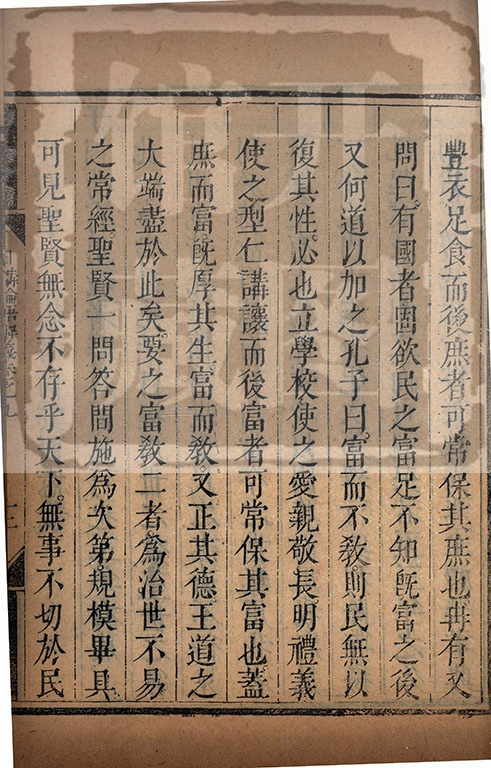 豐衣足食而後庶者可常保其庶也冉有又
問曰有國者固欲民之富足不知旣富之後
又何道以加之孔子曰富而不敎則民無以
復其性必也立學校使之愛親敬長明禮義
使之型仁講讓而後富者可常保其富也蓋
庶而富旣厚其生富而敎又正其德王道之
大端盡於此矣要之富敎二者爲治世不易
之常經聖賢一問答間施爲次第規模畢具
可見聖賢無念不存乎天下無事不切於民